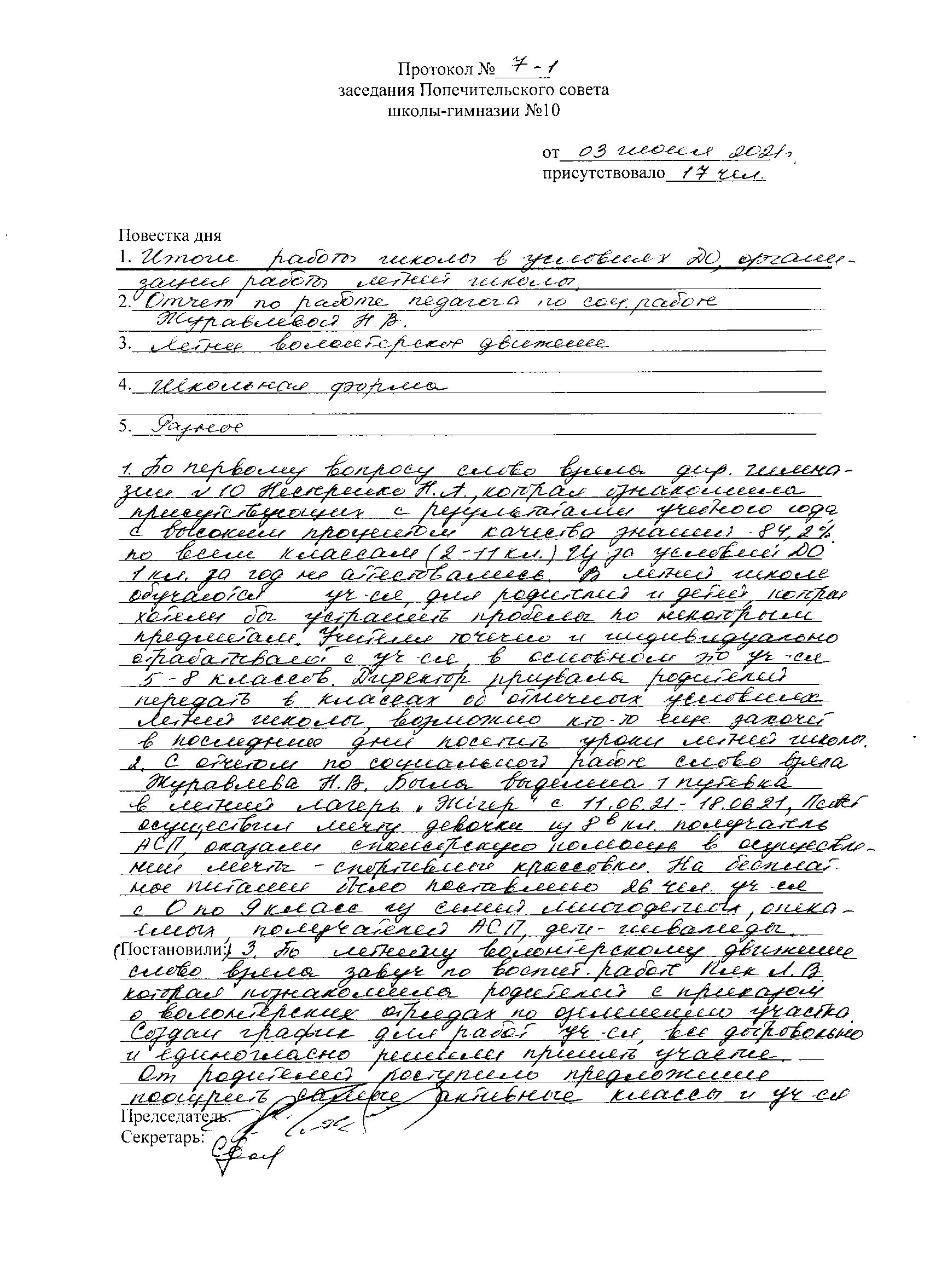 Протокол № 7-1
заседания Попечительского совета
школы-гимназии №10
от 03 июня 2021г.
присутствовало 17 чел.
Повестка дня
1. Итоги работы школы в условиях ДО, органи-
зация работы летней школы.
2. Отчет по работе педагога по соц. работе
Журавлевой Н.В.
3. Летнее волонтерское движение
4. Школьная форма
5. Разное
1. По первому вопросу слово взяла дир. гимна-
зии №10 Нестеренко Н.А., которая ознакомила
присутствующих с результатами учебного года
с высоким процентом качества знаний - 84,2%
по всем классам (2-11 кл.) Из за условий ДО
1 кл. за год не аттестовались. В летней школе
обучаются уч-ся, для родителей и детей, которые
хотели бы устранить пробелы по некоторым
предметам. Учителя точечно и индивидуально
отрабатывают с уч-ся, в основном это уч-ся
5-8 классов. Директор призвала родителей
передать в классах об отличных условиях
летней школы, возможно кто-то еще захочет
в последние дни посетить уроки летней школы.
2. С отчетом по социальной работе слово взяла
Журавлева Н.В. Была выделена 1 путевка
в летний лагерь „Жігер" с 11.06.21-18.06.21,
осуществил мечту девочки из 8в кл. получатель
АСП, оказали спонсорскую помощь в осуществле-
нии мечты - спортивные кроссовки. На бесплат-
ное питание было поставлено 26 чел. уч-ся
с 0 по 9 класс из семей многодетных, опека-
емых, получателей АСП, дети-инвалиды.
(Постановили:) 3. По летнему волонтерскому движению
слово взяла завуч по воспит. работе Пак Л.В.
которая познакомила родителей с приказом
о волонтерских отрядах по озеленению участка.
Создан график для работ уч-ся, все добровольно
и единогласно решили принять участие.
От родителей поступило предложение
поощрить самые активные классы и уч-ся
Председатель:
Секретарь: